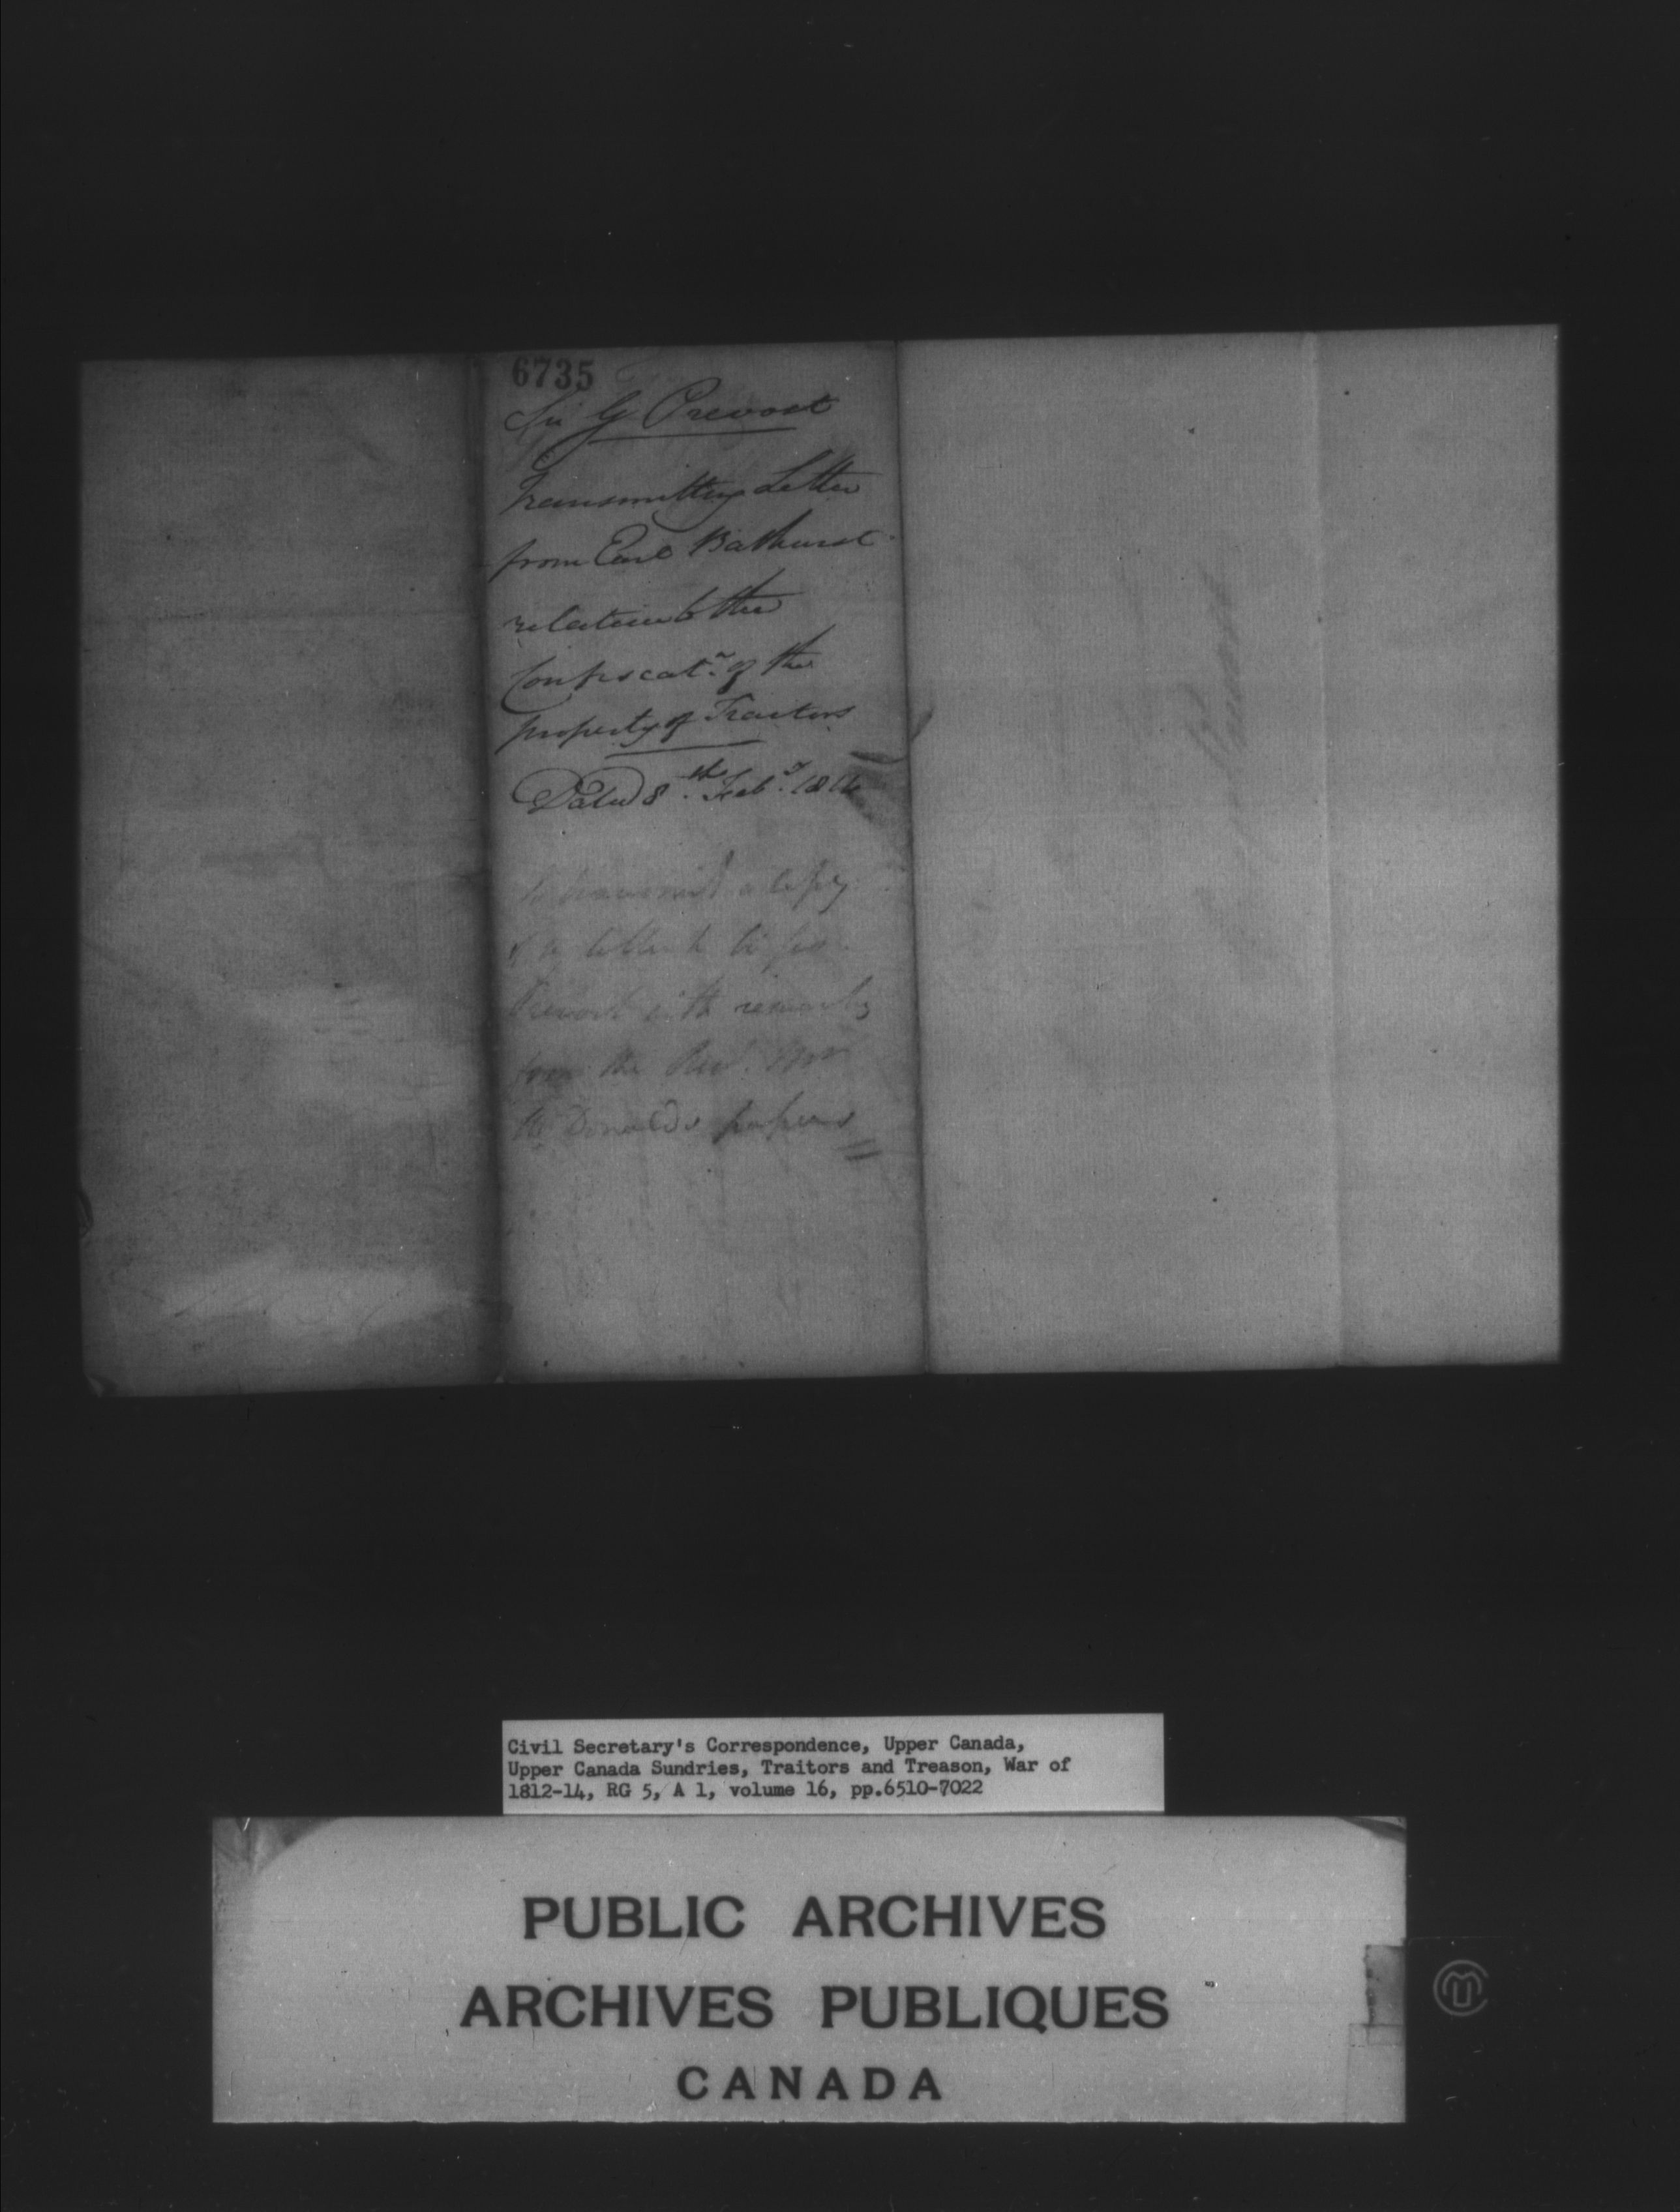 6735
Sir G Prevost
Transmitting Letter
from Earl Bathurst
relative to the
Confiscatn. of the
property of Traitors
Dated 8th Feby. 1814
To transmit a Copy
letter to Sir Geo
Prevost with remarks
from the Revd. Mr
McDonald's papers
Civil Secretary's Correspondence, Upper Canada,
Upper Canada Sundries, Traitors and Treason, War of
1812-14, RG 5, A 1, volume 16, pp.6510-7022
PUBLIC ARCHIVES
ARCHIVES PUBLIQUES
CANADA